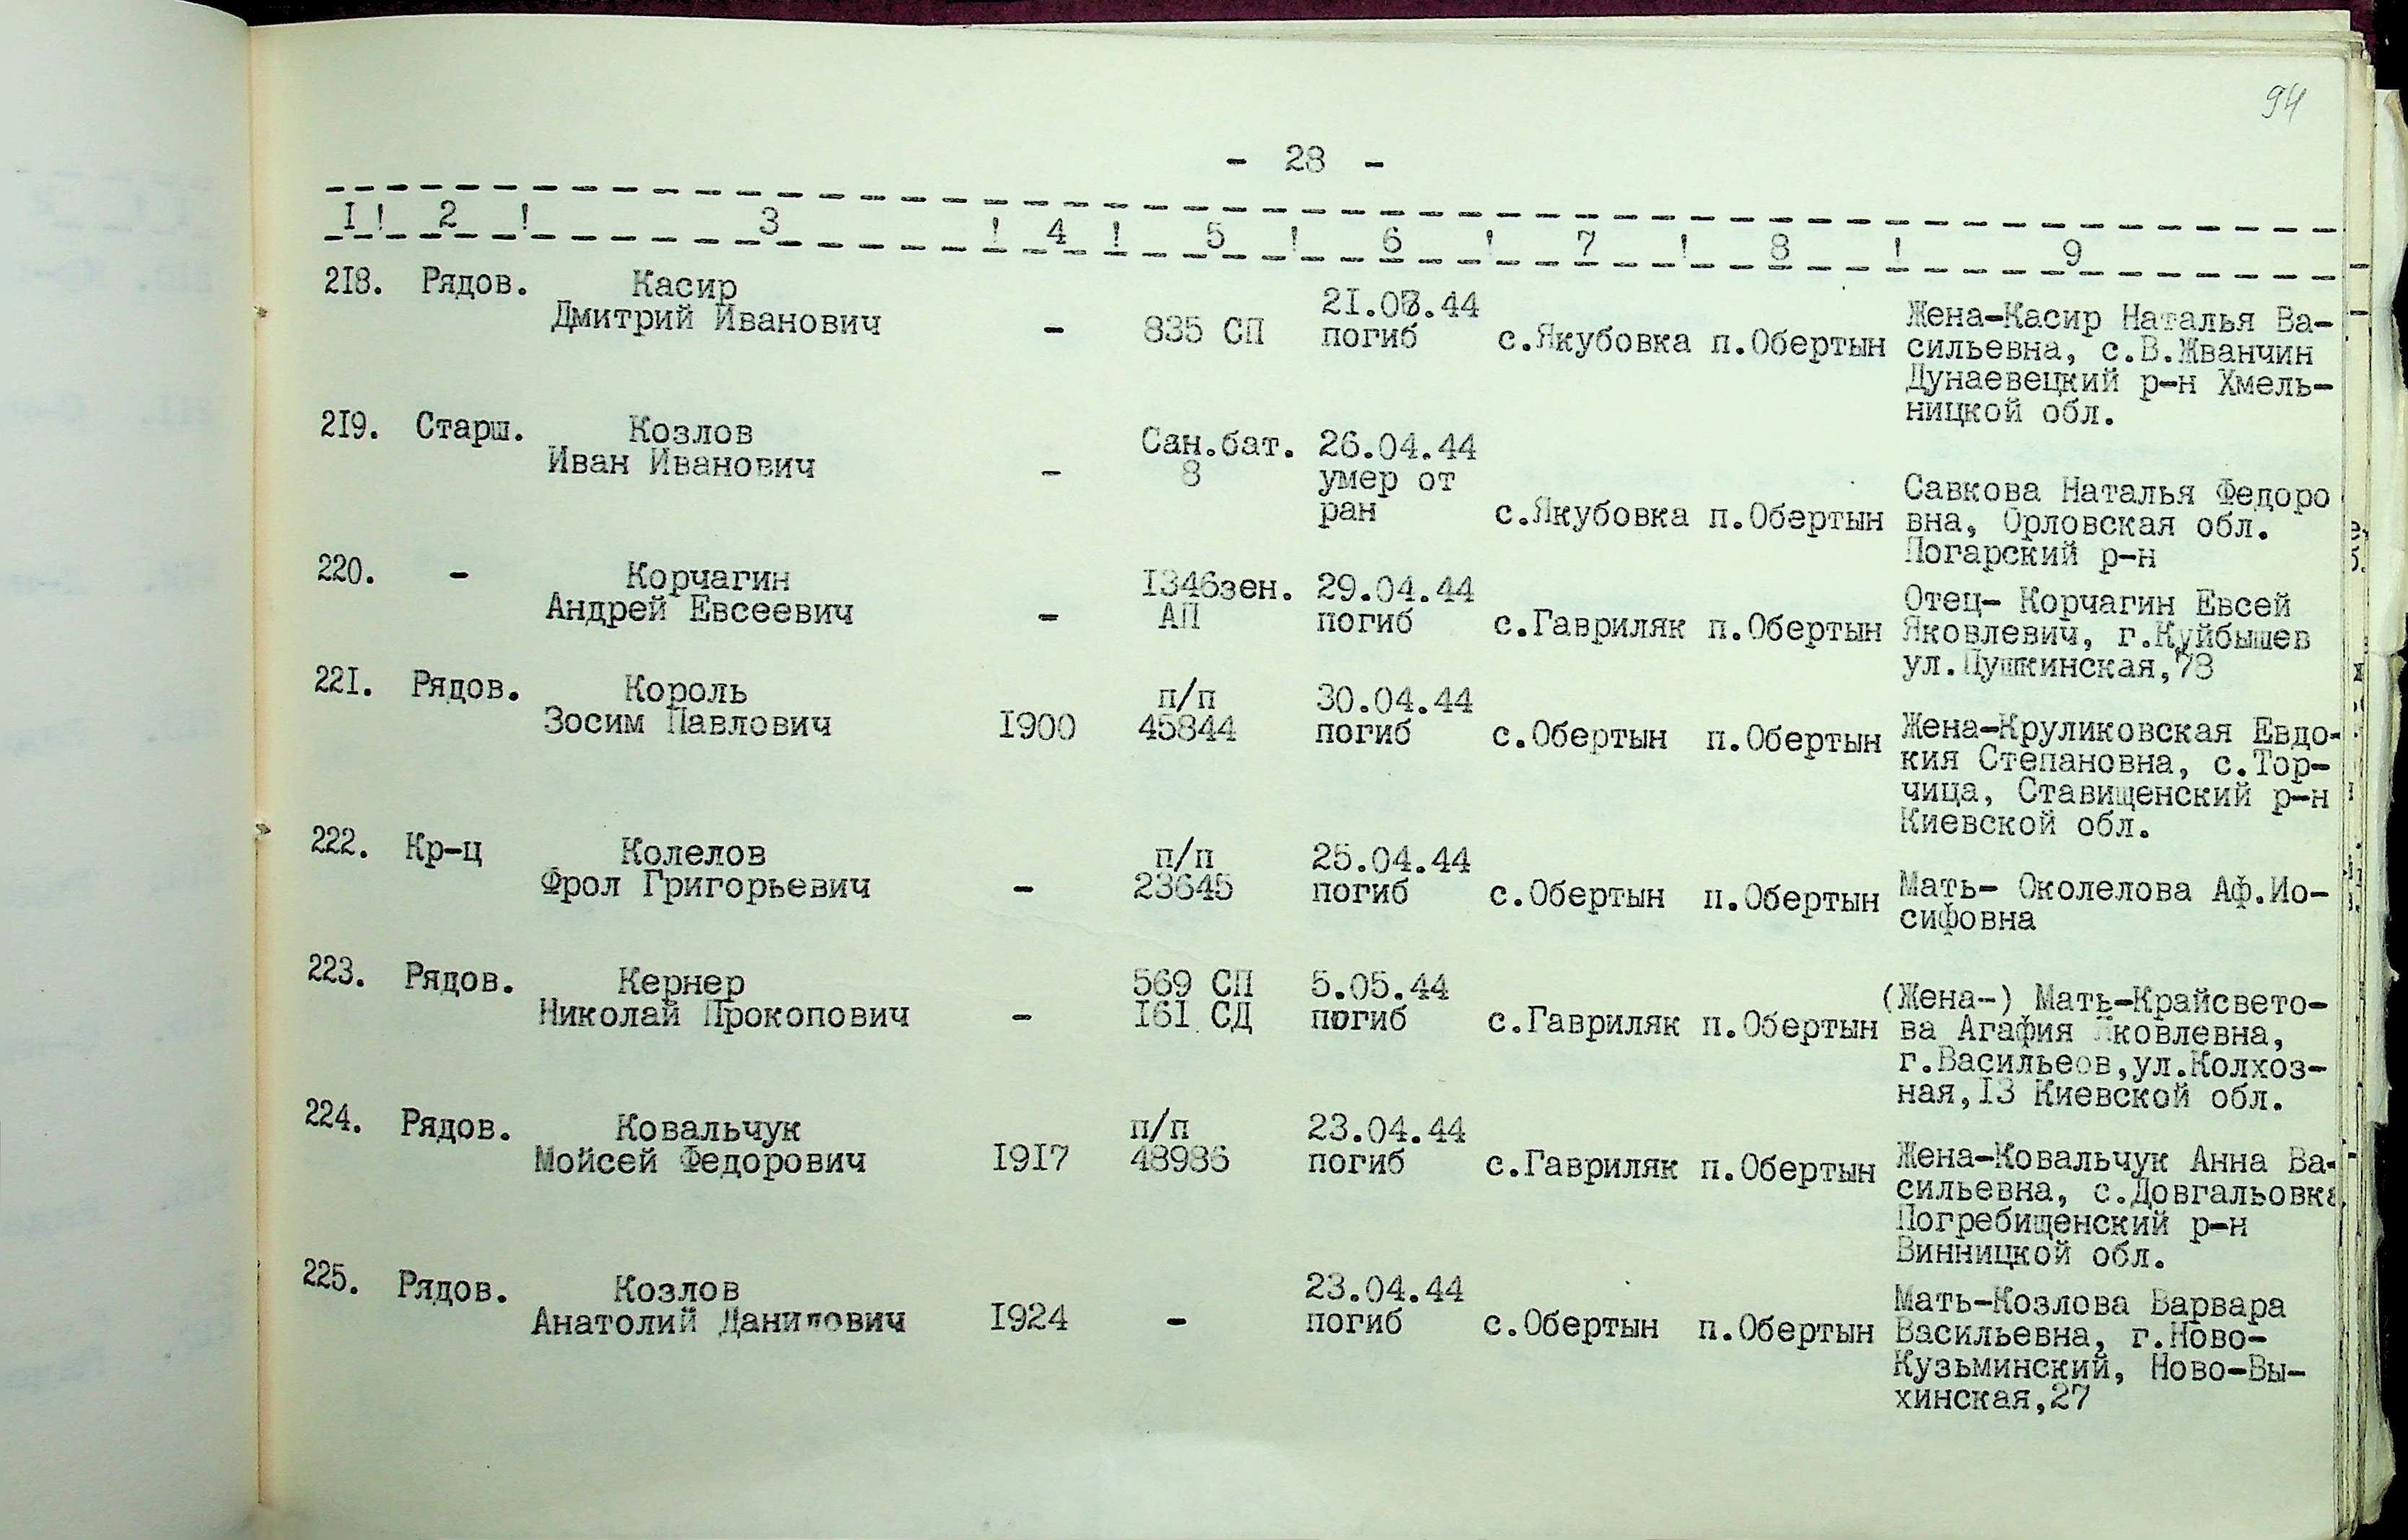 94
- 28 -
I ! 2 ! 3 ! 4 ! 5 ! 6 ! 7 ! 8 ! 9
218. Рядов. Касир 21.03.44 Жена-Касир Наталья Ва-
Дмитрий Иванович - 835 СП погиб с.Якубовка п.Обертын сильевна, с.В.Жванчин
Дунаевецкий р-н Хмель-
ницкой обл.
219. Старш. Козлов Сан.бат. 26.04.44
Иван Иванович - 8 умер от Савкова Наталья Федоро
ран с.Якубовка п.Обертын вна, Орловская обл.
Погарский р-н
220. - Корчагин I346зен. 29.04.44 Отец- Корчагин Евсей
Андрей Евсеевич - АП погиб с.Гавриляк п.Обертын Яковлевич, г.Куйбышев
ул.Пушкинская,78
221. Рядов. Король п/п 30.04.44
Зосим Павлович I900 45844 погиб с.Обертын п.Обертын Жена-Круликовская Евдо-
кия Степановна, с.Тор-
чица, Ставищенский р-н
Киевской обл.
222. Кр-ц Колелов п/п 25.04.44
Фрол Григорьевич - 23645 погиб с.Обертын п.Обертын Мать- Околелова Аф.Ио-
сифовна
223. Рядов. Кернер 569 СП 5.05.44 (Жена-) Мать-Крайсвето-
Николай Прокопович - I6I СД погиб с.Гавриляк п.Обертын ва Агафия Яковлевна,
г.Васильеов,ул.Колхоз-
ная,I3 Киевской обл.
224. Рядов. Ковальчук п/п 23.04.44
Мойсей Федорович I9I7 48986 погиб с.Гавриляк п.Обертын Жена-Ковальчук Анна Ва-
сильевна, с.Довгальовка
Погребищенский р-н
Винницкой обл.
225. Рядов. Козлов 23.04.44 Мать-Козлова Варвара
Анатолий Данилович I924 - погиб с.Обертын п.Обертын Васильевна, г.Ново-
Кузьминский, Ново-Вы-
хинская,27